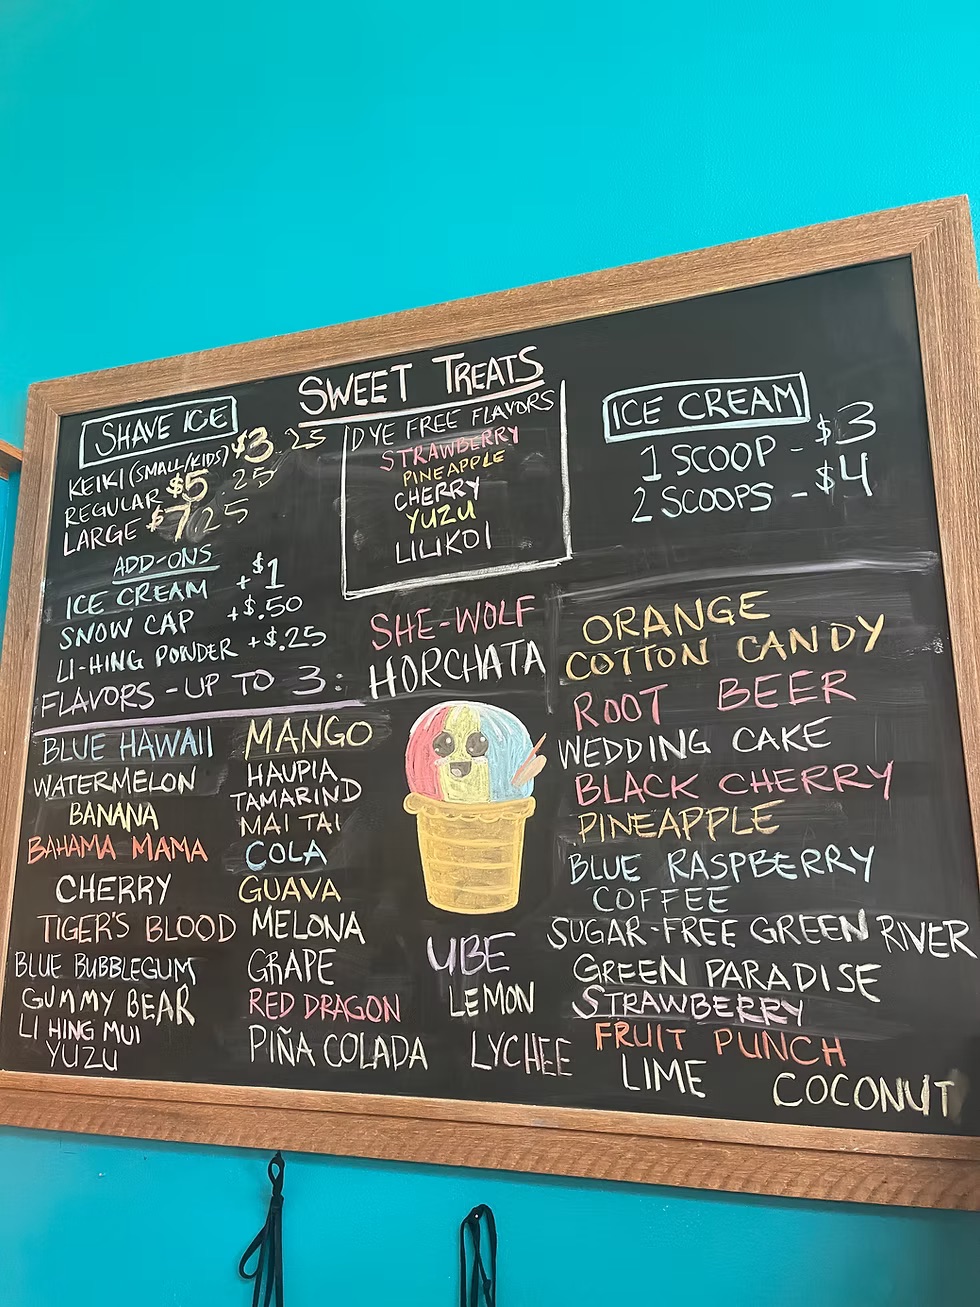 SWEET TREATS
SHAVE ICE
KEIKI (SMALL/KIDS) $3.25
REGULAR $5.25
LARGE $7.25
ADD-ONS
ICE CREAM +$1
SNOW CAP +$.50
LI-HING POWDER +$.25
FLAVORS - UP TO 3:
DYE FREE FLAVORS
STRAWBERRY
PINEAPPLE
CHERRY
YUZU
LILIKOI
ICE CREAM
1 SCOOP - $3
2 SCOOPS - $4
BLUE HAWAII
WATERMELON
BANANA
BAHAMA MAMA
CHERRY
TIGER'S BLOOD
BLUE BUBBLEGUM
GUMMY BEAR
LI HING MUI
YUZU
MANGO
HAUPIA
TAMARIND
MAI TAI
COLA
GUAVA
MELONA
GRAPE
RED DRAGON
PIÑA COLADA
SHE-WOLF
HORCHATA
UBE
LEMON
LYCHEE
ORANGE
COTTON CANDY
ROOT BEER
WEDDING CAKE
BLACK CHERRY
PINEAPPLE
BLUE RASPBERRY
COFFEE
SUGAR-FREE GREEN RIVER
GREEN PARADISE
STRAWBERRY
FRUIT PUNCH
LIME
COCONUT